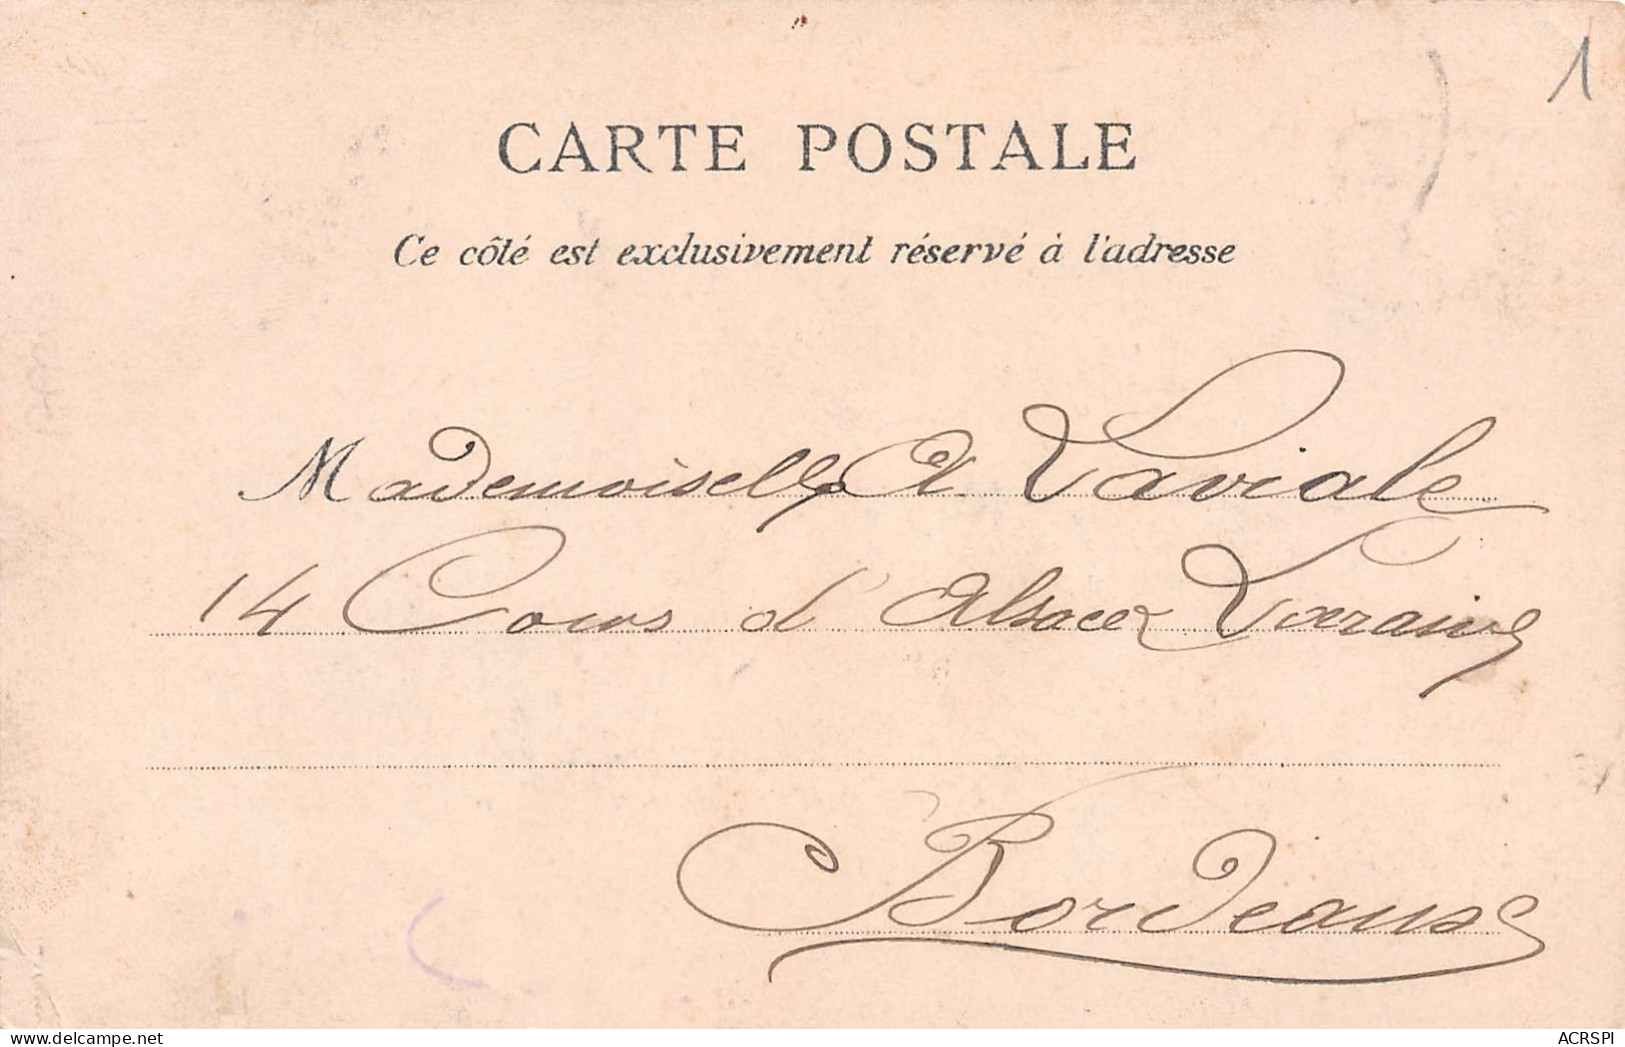 1
CARTE POSTALE
Ce côté est exclusivement réservé à l'adresse
Mademoiselle A Laviale
14 Cours d'Alsace Loraine
Bordeaux
delcampe.net
ACRSPI